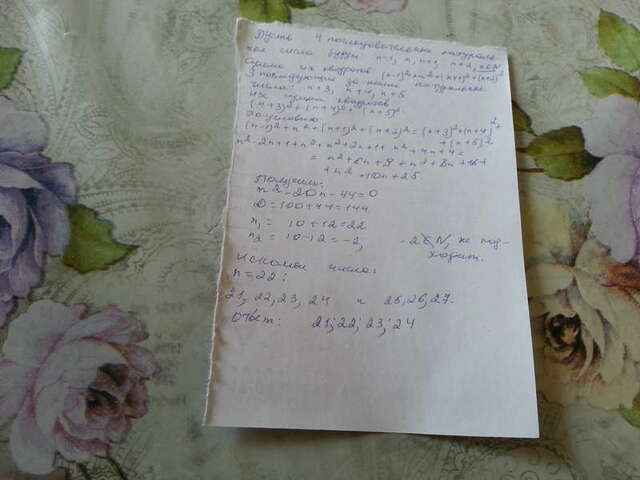 Пусть 4 последовательных натураль-
ные числа будут n-1, n, n+1, n+2, n∈N
Сумма их квадратов (n-1)²+n²+(n+1)²+(n+2)²
3 последующих за ними натуральных
числа: n+3, n+4, n+5
их сумма квадратов
(n+3)²+(n+4)²+(n+5)²
По условию
(n-1)²+n²+(n+1)²+(n+2)²=(n+3)²+(n+4)²+
+(n+5)²
n²-2n+1+n²+n²+2n+1+n²+4n+4=
= n²+6n+9+n²+8n+16+
+n²+10n+25
Получим:
n²-20n-44=0
D=100+44=144
n₁= 10+12=22
n₂= 10-12=-2, -2∉N, не под-
ходит.
Искомые числа:
n=22:
21, 22, 23, 24 и 25, 26, 27.
Ответ: 21; 22; 23; 24